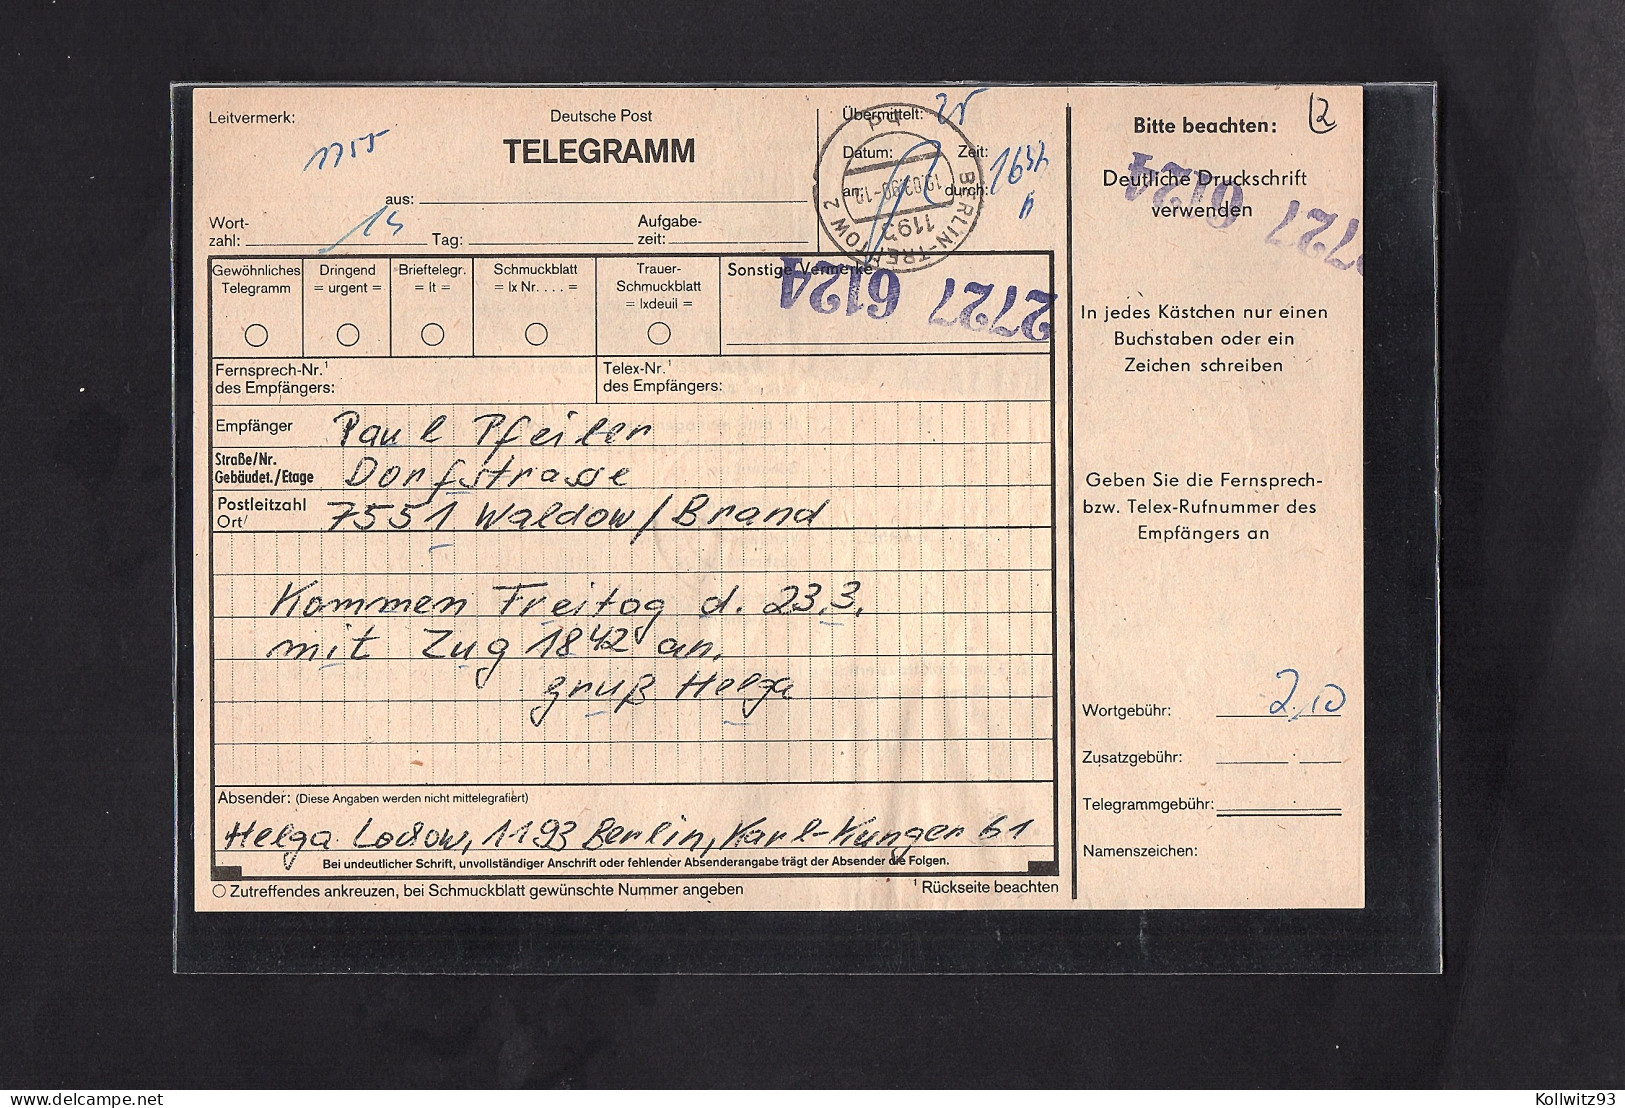 Leitvermerk:
1755
Deutsche Post
TELEGRAMM
aus:
Wort-
zahl: 15
Tag:
Aufgabe-
zeit:
Übermittelt: 25
Datum:
Zeit:
an:
durch:
BERLIN-TREPTOW 2
1193
Gewöhnliches
Telegramm
Dringend
= urgent =
Brieftelegr.
= lt =
Schmuckblatt
= lx Nr. . . . =
Trauer-
Schmuckblatt
= lxdeuil =
Sonstige Vermerke
2727 6124
Fernsprech-Nr.¹
des Empfängers:
Telex-Nr.¹
des Empfängers:
Empfänger Paul Pfeiler
Straße/Nr.
Gebäudet./Etage Dorfstrasse
Postleitzahl
Ort 7551 Waldow/Brand
Kommen Freitag d. 23.3.
mit Zug 18 42 an.
gruß Helga
Absender: (Diese Angaben werden nicht mittelegrafiert)
Helga Lodow, 1193 Berlin, Karl-Kunger 61
Bei undeutlicher Schrift, unvollständiger Anschrift oder fehlender Absenderangabe trägt der Absender die Folgen.
Zutreffendes ankreuzen, bei Schmuckblatt gewünschte Nummer angeben
¹ Rückseite beachten
Bitte beachten:
2
Deutliche Druckschrift
verwenden
2727 6124
In jedes Kästchen nur einen
Buchstaben oder ein
Zeichen schreiben
Geben Sie die Fernsprech-
bzw. Telex-Rufnummer des
Empfängers an
Wortgebühr: 2,10
Zusatzgebühr:
Telegrammgebühr:
Namenszeichen:
hosted by delcampe.net
Kollwitz93